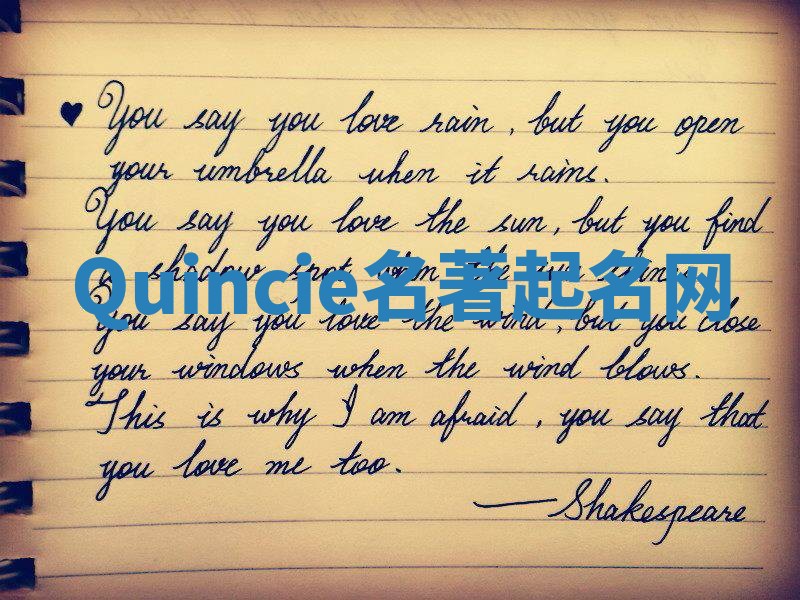 ♥ You say you love rain, but you open
your umbrella when it rains.
You say you love the sun, but you find
a shadow spot when the sun shines.
Quincie名著起名网
You say you love the wind, but you close
your windows when the wind blows.
This is why I am afraid, you say that
you love me too.
—Shakespeare